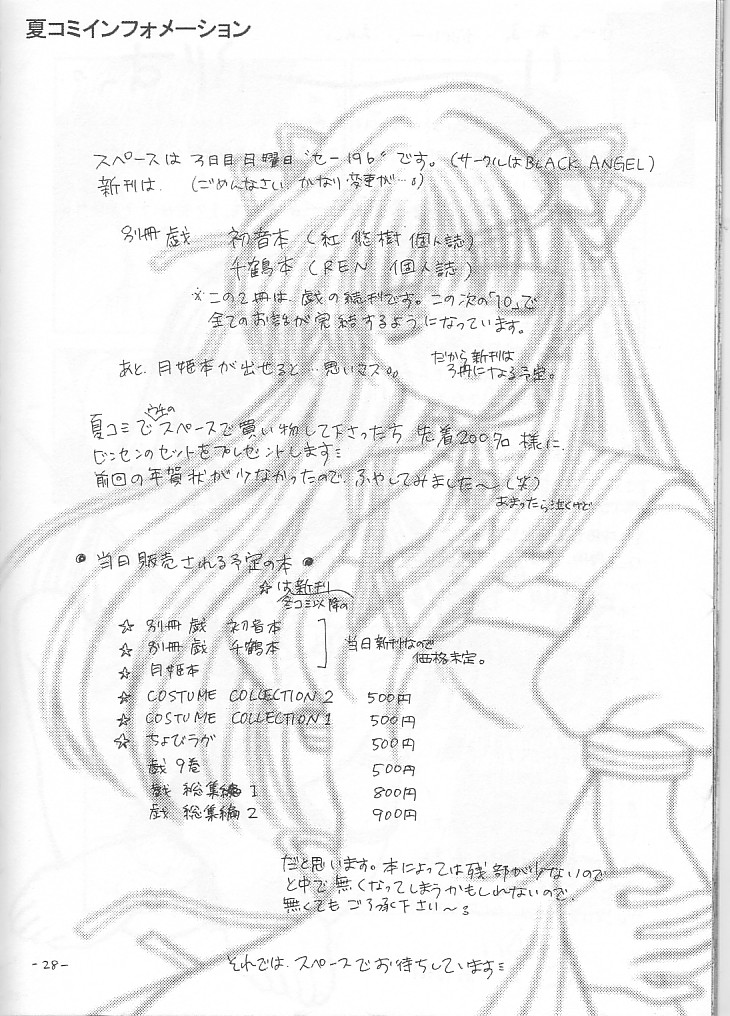 夏コミインフォメーション
スペースは3日目月曜日"セー19b"です。(サークルはBLACK ANGEL)
新刊は、(ごめんなさい、かなり変更が…。)
別冊 戯 初音本(紅 悠樹 個人誌)
千鶴本(REN 個人誌)
※この2冊は、戯の続刊です。この次の「10」で
全てのお話が完結するようになっています。
あと、月姫本が出せると…思いマス。。
だから新刊は
3冊になる予定。
夏コミでウチのスペースで買い物して下さった方 先着200名様に、
ビンセンのセットをプレゼントします
前回の年賀状が少なかったので、ふやしてみました〜(笑)
あまったら泣くけど
● 当日販売される予定の本 ●
☆は新刊
冬コミ以降の
☆ 別冊 戯 初音本
☆ 別冊 戯 千鶴本
☆ 月姫本
当日新刊なので
価格未定。
☆ COSTUME COLLECTION 2 500円
☆ COSTUME COLLECTION 1 500円
☆ ちょびラヴ 500円
戯 9巻 500円
戯 総集編 1 800円
戯 総集編 2 900円
だと思います。本によっては残部が少ないので
と中で無くなってしまうかもしれないので、
無くてもご了承下さい〜。
それでは、スペースでお待ちしています
-28-